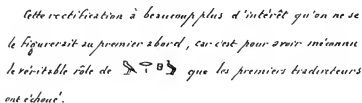 Cette rectification à beaucoup plus d'intérêt qu'on ne se
le figurerait au premier abord, car c'est pour avoir méconnu
le véritable rôle de que les premiers traducteurs
ont échoué.